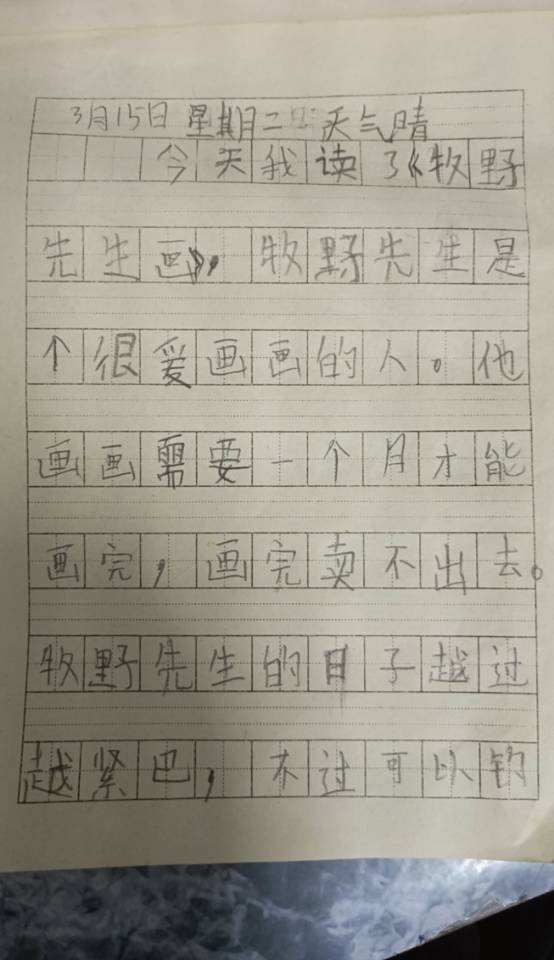 3月15日 星期二 天气晴
今天我读了《牧野
先生画》，牧野先生是
个很爱画画的人。他
画画需要一个月才能
画完，画完卖不出去。
牧野先生的日子越过
越紧巴，不过可以钓